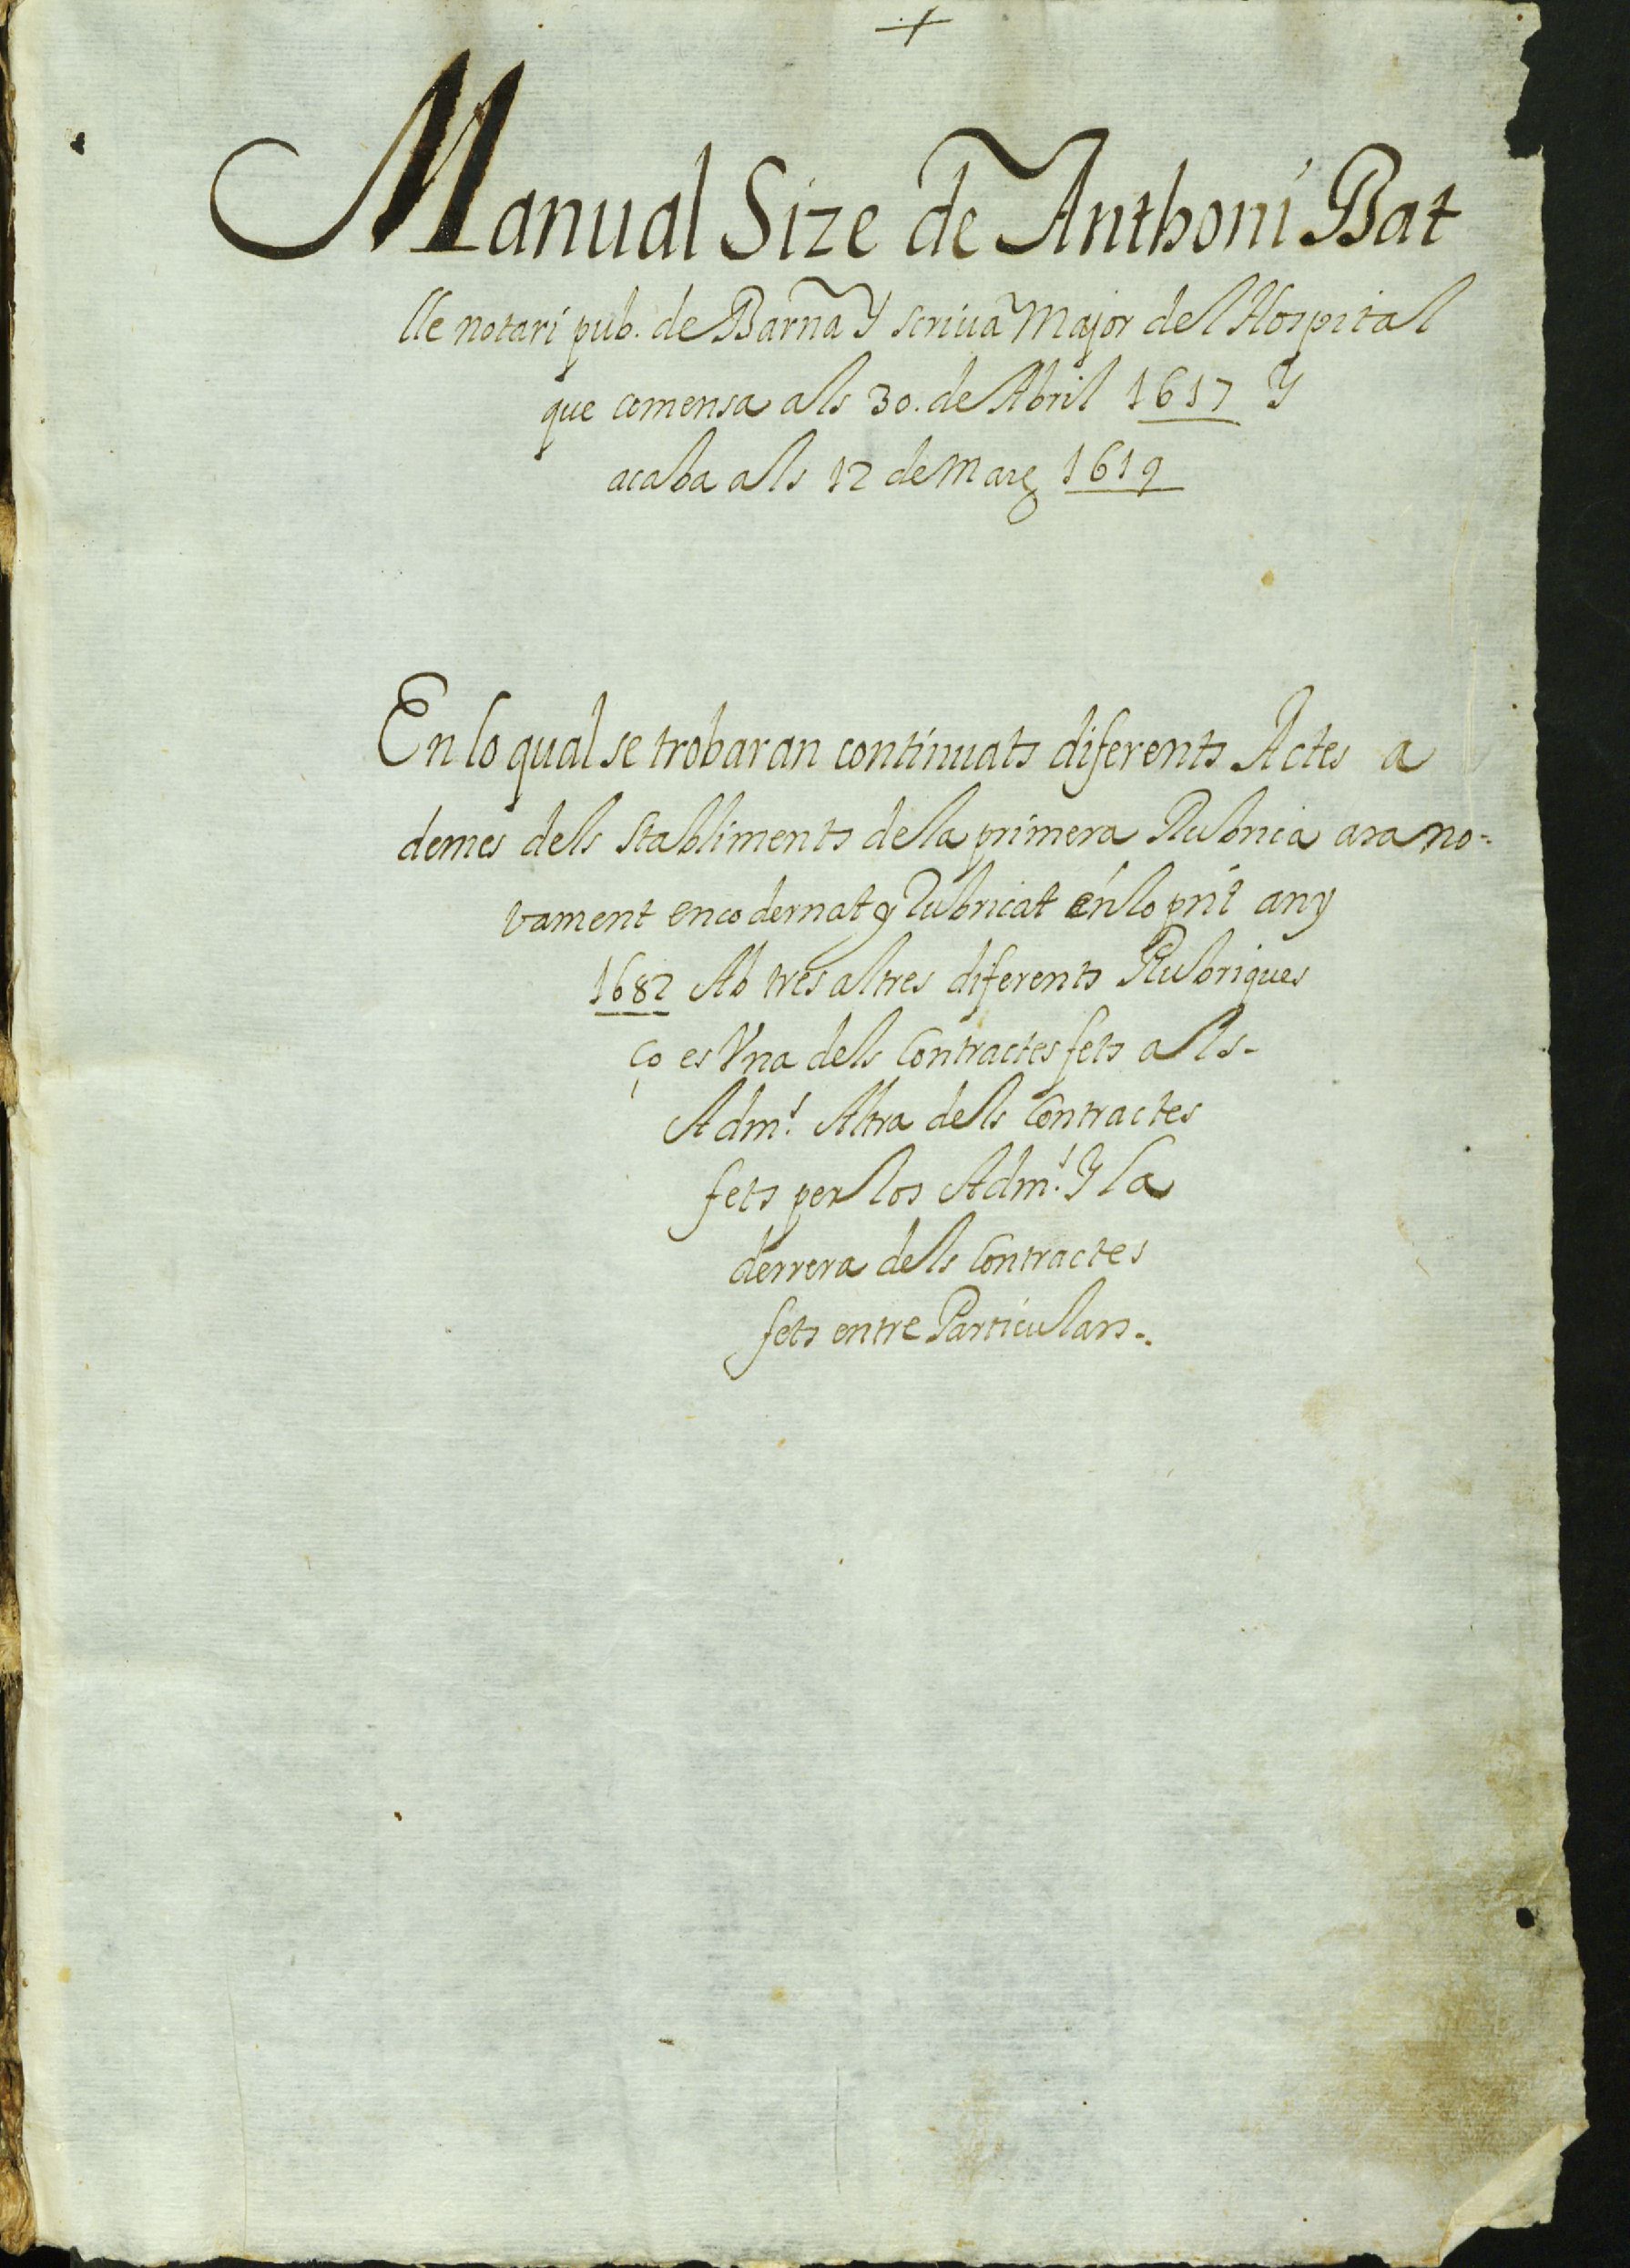 Manual Size de Anthoni Bat
lle notari pub. de Barña Y scriuã Major del Hospital
que comensa als 30. de Abril 1617 Y
acaba als 12 de Març 1619
En lo qual se trobaran continuats diferents Actes a
demes dels stabliments de la primera Rubrica ara no-
vament encodernat y Rubricat en lo pnt any
1682 Ab tres altres diferents Rubriques
ço es Vna dels Contractes fets als
Adm.^s Altra dels Contractes
fets per los Adm.^s Y la
derrera dels Contractes
fets entre Particulars.